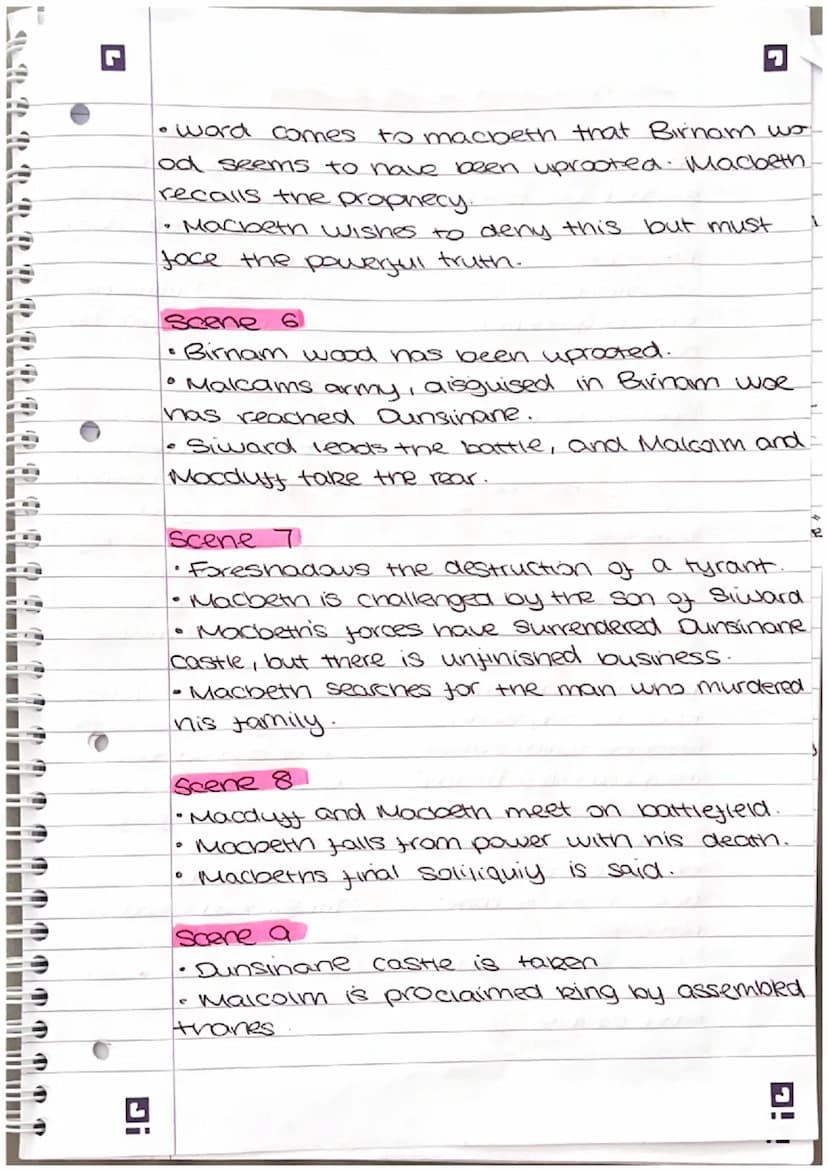 • Word comes to macbeth that Birnam wo
od seems to have been uprooted. Macbeth
recalls the prophecy.
• Macbeth wishes to deny this but must
face the powerful truth.
Scene 6
• Birnam wood has been uprooted.
• Malcams army, disguised in Birnam woe
has reached Dunsinane.
• Siward leads the battle, and Malcolm and
Macduff take the rear.
Scene 7
• Foreshadows the destruction of a tyrant.
• Macbeth is challenged by the son of Siward
• Macbeth's forces have surrendered Dunsinane
castle, but there is unfinished business.
• Macbeth searches for the man who murdered
his family.
Scene 8
• Macduff and Macbeth meet on battlefield.
• Macbeth falls from power with his death.
• Macbeths final soliliquiy is said.
Scene 9
• Dunsinane castle is taken
• Malcolm is proclaimed king by assembled
thanes.